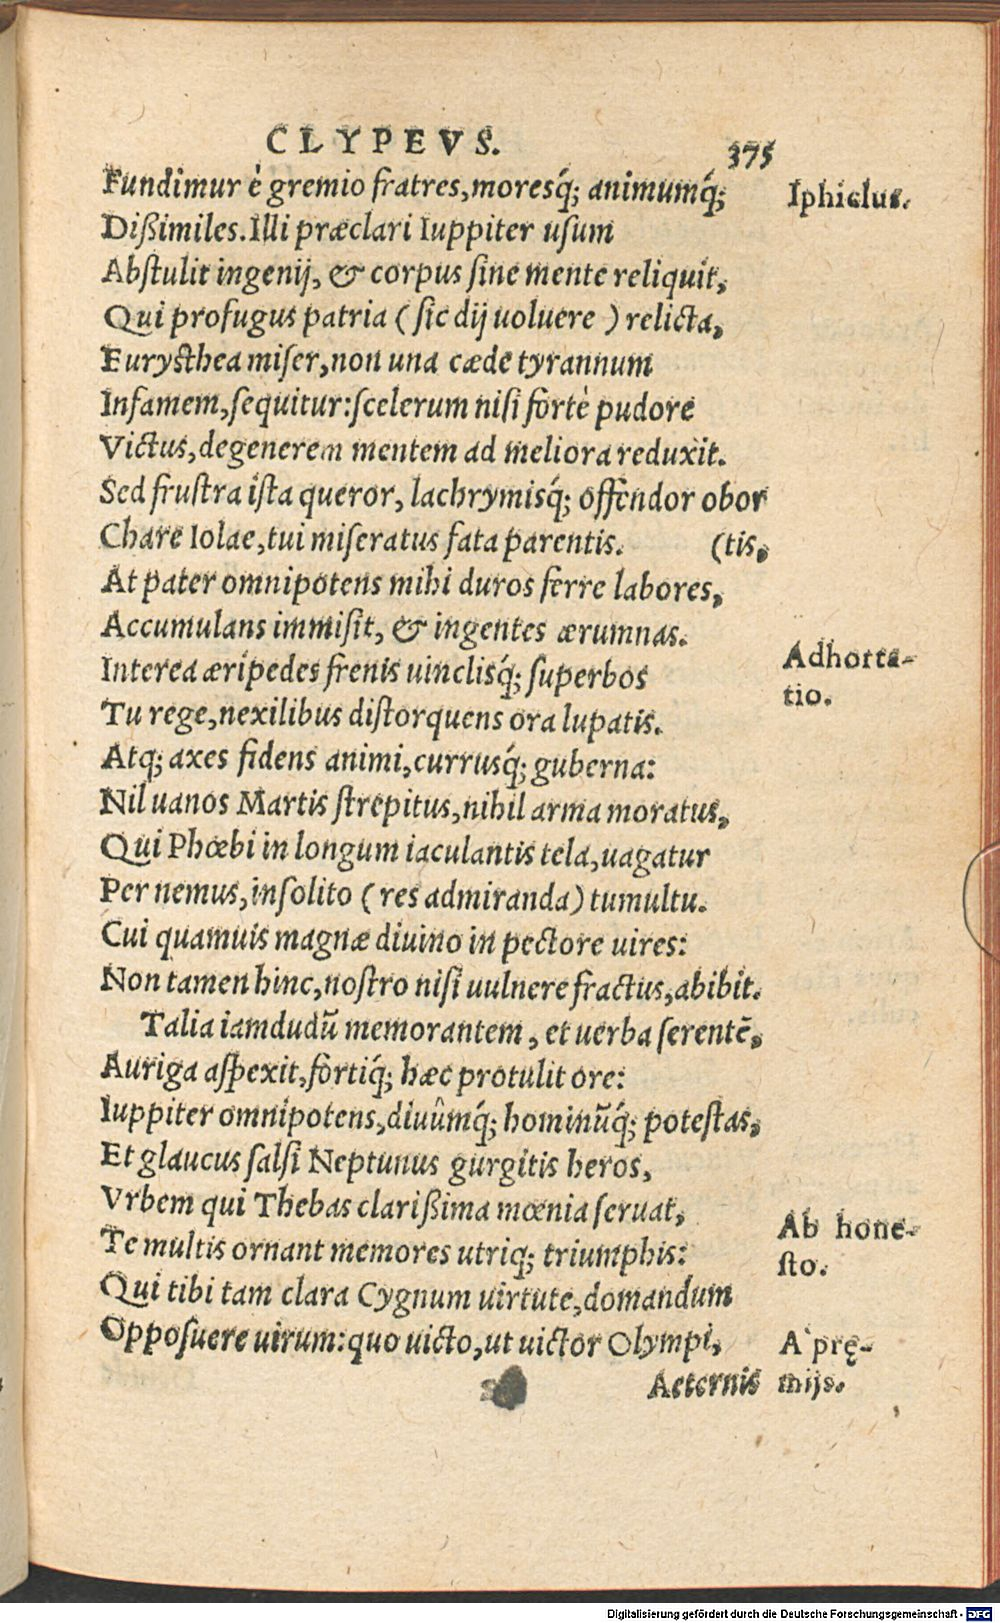 CLYPEVS. 375
Fundimur è gremio fratres, moresq́; animumq́; Iphiclus.
Dißimiles. Illi præclari Iuppiter usum
Abstulit ingenij, & corpus sine mente reliquit,
Qui profugus patria (sic dij uoluere) relicta,
Eurysthea miser, non una cæde tyrannum
Infamem, sequitur: scelerum nisi fortè pudore
Victus, degenerem mentem ad meliora reduxit.
Sed frustra ista queror, lachrymisq́; offendor obor
Chare Iolae, tui miseratus fata parentis. (tis,
At pater omnipotens mihi duros ferre labores,
Accumulans immisit, & ingentes ærumnas.
Interea æripedes frenis uinclisq́; superbos Adhorta-
Tu rege, nexilibus distorquens ora lupatis. tio.
Atq; axes fidens animi, currusq́; guberna:
Nil uanos Martis strepitus, nihil arma moratus,
Qui Phœbi in longum iaculantis tela, uagatur
Per nemus, insolito (res admiranda) tumultu.
Cui quamuis magnæ diuino in pectore uires:
Non tamen hinc, nostro nisi uulnere fractus, abibit.
Talia iamdudũ memorantem, et uerba serentẽ,
Auriga aspexit, fortiq́; hæc protulit ore:
Iuppiter omnipotens, diuûmq́; hominũq́; potestas,
Et glaucus salsi Neptunus gurgitis heros,
Vrbem qui Thebas clarißima mœnia seruat,
Te multis ornant memores utriq; triumphis: Ab hone-
Qui tibi tam clara Cygnum uirtute, domandum sto.
Opposuere uirum: quo uicto, ut uictor Olympi, A' prę-
Aeternis mijs.
Digitalisierung gefördert durch die Deutsche Forschungsgemeinschaft - DFG